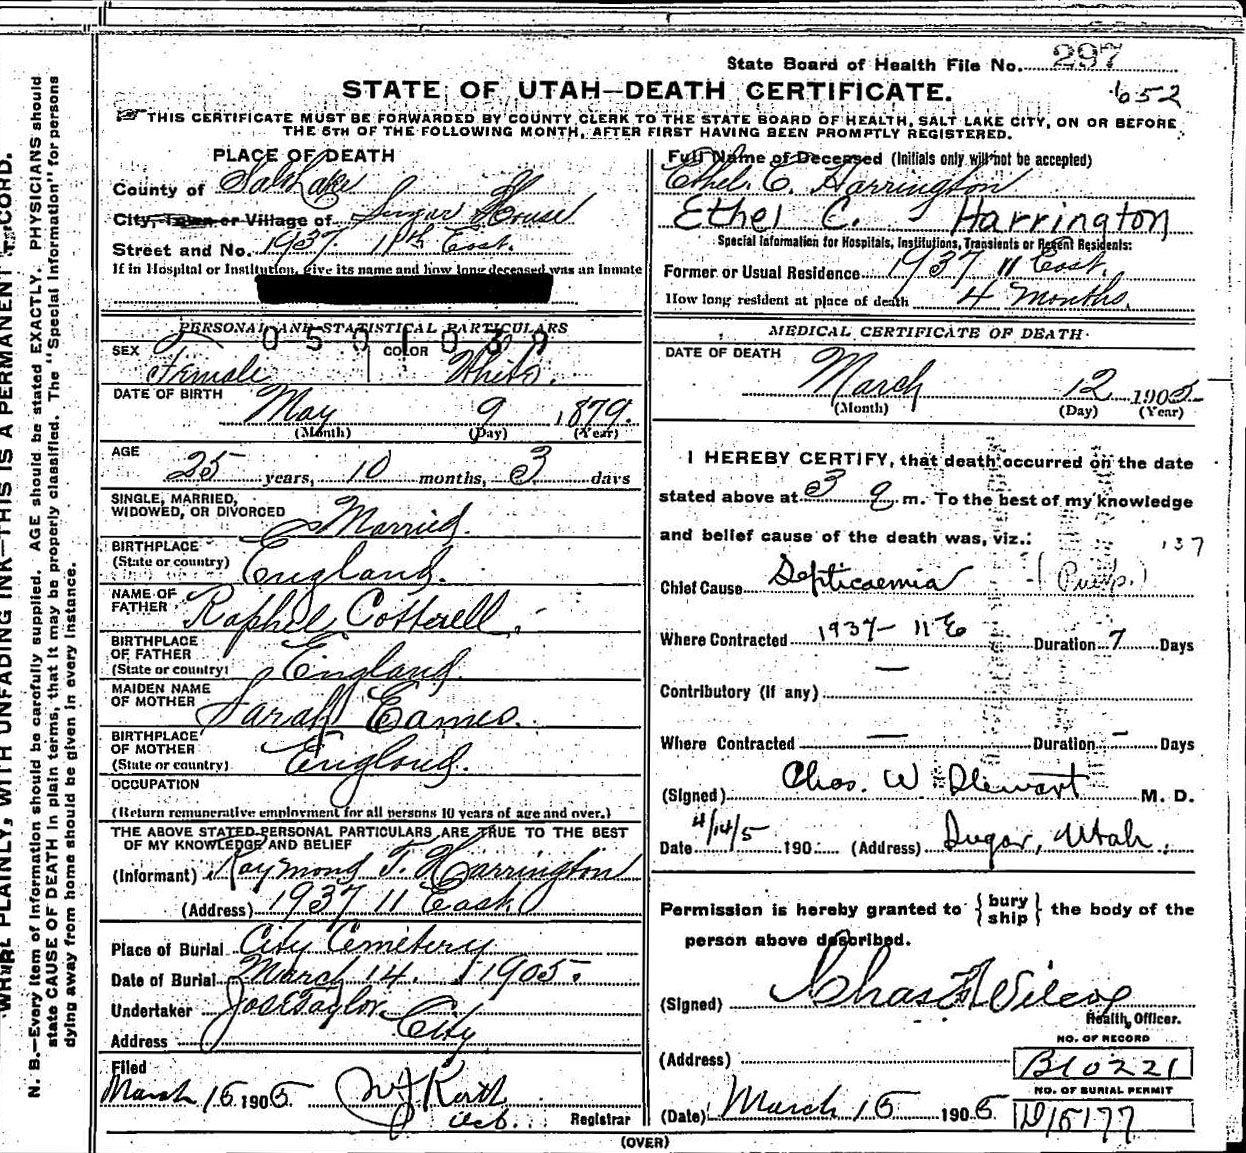 State Board of Health File No. 297
STATE OF UTAH—DEATH CERTIFICATE.
652
THIS CERTIFICATE MUST BE FORWARDED BY COUNTY CLERK TO THE STATE BOARD OF HEALTH, SALT LAKE CITY, ON OR BEFORE
THE 5TH OF THE FOLLOWING MONTH, AFTER FIRST HAVING BEEN PROMPTLY REGISTERED.
PLACE OF DEATH
County of Salt Lake
City, Town or Village of Sugar House
Street and No. 1937 11th East.
If in Hospital or Institution, give its name and how long deceased was an inmate
PERSONAL AND STATISTICAL PARTICULARS
0501039
SEX Female COLOR White.
DATE OF BIRTH May 9 1879.
(Month) (Day) (Year)
AGE 25 years, 10 months, 3 days
SINGLE, MARRIED,
WIDOWED, OR DIVORCED Married.
BIRTHPLACE
(State or country) England.
NAME OF
FATHER Raphel Cotterell.
BIRTHPLACE
OF FATHER
(State or country) England.
MAIDEN NAME
OF MOTHER Sarah Eames.
BIRTHPLACE
OF MOTHER
(State or country) England.
OCCUPATION
(Return remunerative employment for all persons 10 years of age and over.)
THE ABOVE STATED PERSONAL PARTICULARS ARE TRUE TO THE BEST
OF MY KNOWLEDGE AND BELIEF
(Informant) Raymond T. Harrington
(Address) 1937 11 East.
Place of Burial City Cemetery
Date of Burial March 14. 1905.
Undertaker Jos E Taylor
Address City
Filed
March 15 1905
Registrar
Full Name of Deceased (Initials only will not be accepted)
Ethel C. Harrington
Ethel C. Harrington
Special Information for Hospitals, Institutions, Transients or Recent Residents:
Former or Usual Residence 1937 11 East.
How long resident at place of death 4 Months.
MEDICAL CERTIFICATE OF DEATH
DATE OF DEATH
March 12 1905
(Month) (Day) (Year)
I HEREBY CERTIFY, that death occurred on the date
stated above at 3 a m. To the best of my knowledge
and belief cause of the death was, viz.:
137
Chief Cause Septicaemia (Puerp.)
Where Contracted 1937- 11 E Duration 7 Days
Contributory (if any) —
Where Contracted — Duration - Days
(Signed) Chas. W. Stewart M. D.
Date 4/14/5 190 (Address) Sugar, Utah.
Permission is hereby granted to {bury ship} the body of the
person above described.
(Signed) Chas F Wilcox
Health Officer.
(Address)
NO. OF RECORD
B10221
NO. OF BURIAL PERMIT
(Date) March 15 1905 D/5177
(OVER)
WRITE PLAINLY, WITH UNFADING INK—THIS IS A PERMANENT RECORD.
N. B.—Every item of information should be carefully supplied. AGE should be stated EXACTLY. PHYSICIANS should
state CAUSE OF DEATH in plain terms, that it may be properly classified. The "Special Information" for persons
dying away from home should be given in every instance.